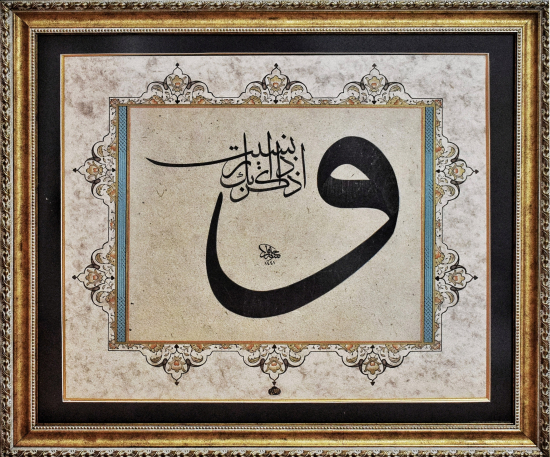 واذكر ربك اذا نسيت